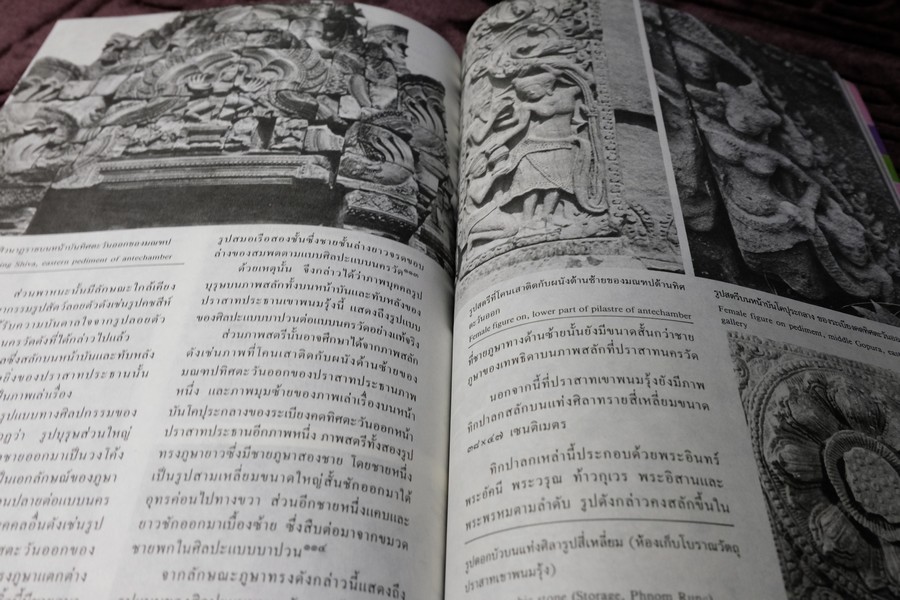 ศิวนาฏราชบนหน้าบันทิศตะวันออกของมณฑป
ing Shiva, eastern pediment of antechamber
ส่วนพาหนะนั้นมีลักษณะใกล้เคียง
กรรมรูปสัตว์ลอยตัวดังเช่นรูปคชสีห์
รับความบันดาลใจจากปลายตัว
ครวัดดังที่ได้กล่าวไปแล้ว
ซึ่งสลักบนหน้าบันและทับหลัง
ยิ่งของปราสาทประธานนั้น
ป็นภาพเล่าเรื่อง
รูปแบบทางศิลปกรรมของ
ฏว่า รูปบุรุษส่วนใหญ่
ชายออกมาเป็นวงโค้ง
ป็นเอกลักษณ์ของภูษา
นปลายต่อแบบนคร
คคลอื่นดังเช่นรูป
ตะวันออกของ
รงภูษาแตกต่าง
รูปสมอเรือสองชั้นซึ่งชายชั้นล่างยาวจรดขอบ
ล่างของสมพตตามแบบศิลปะแบบนครวัด๑๑๓
ด้วยเหตุนั้น จึงกล่าวได้ว่าภาพบุคคลรูป
บุรุษบนภาพสลักทั้งบนหน้าบันและทับหลังของ
ปราสาทประธานเขาพนมรุ้งนี้ แสดงถึงรูปแบบ
ของศิลปะแบบบาปวนต่อแบบนครวัดอย่างแท้จริง
ส่วนภาพสตรีนั้นอาจศึกษาได้จากภาพสลัก
ดังเช่นภาพที่โคนเสาติดกับผนังด้านซ้ายของ
มณฑปทิศตะวันออกของปราสาทประธานภาพ
หนึ่ง และภาพมุมซ้ายของภาพเล่าเรื่องบนหน้า
บันโคปุระกลางของระเบียงคดทิศตะวันออกหน้า
ปราสาทประธานอีกภาพหนึ่ง ภาพสตรีทั้งสองรูป
ทรงภูษายาวซึ่งมีชายภูษาสองชาย โดยชายหนึ่ง
เป็นรูปสามเหลี่ยมขนาดใหญ่สั้นชักออกมาใต้
อุทรค่อนไปทางขวา ส่วนอีกชายหนึ่งแคบและ
ยาวชักออกมาเบื้องซ้าย ซึ่งสืบต่อมาจากขมวด
ชายพกในศิลปะแบบบาปวน๑๑๔
จากลักษณะภูษาทรงดังกล่าวนี้แสดงถึง
รูปสตรีที่โคนเสาติดกับผนังด้านซ้ายของมณฑปด้านทิศ
ตะวันออก
Female figure on, lower part of pilastre of antechamber
ที่ชายภูษาทางด้านซ้ายนั้นยังมีขนาดสั้นกว่าชาย
ภูษาของเทพธิดาบนภาพสลักที่ปราสาทนครวัด
นอกจากนี้ที่ปราสาทเขาพนมรุ้งยังมีภาพ
ทิกปาลกสลักบนแท่งศิลาทรายสี่เหลี่ยมขนาด
๓๘×๔๗ เซนติเมตร
ทิกปาลกเหล่านี้ประกอบด้วยพระอินทร์
พระอัคนี พระวรุณ ท้าวกุเวร พระอิสานและ
พระพรหมตามลำดับ รูปดังกล่าวคงสลักขึ้นใน
รูปดอกบัวบนแท่งศิลารูปสี่เหลี่ยม (ห้องเก็บโบราณวัตถุ
ปราสาทเขาพนมรุ้ง)
stone (Storage, Phnom Rung)
รูปสตรีบนหน้าบันโคปุระกลาง ของระเบียงคดทิศตะวันออก
Female figure on pediment, middle Gopura,
gallery